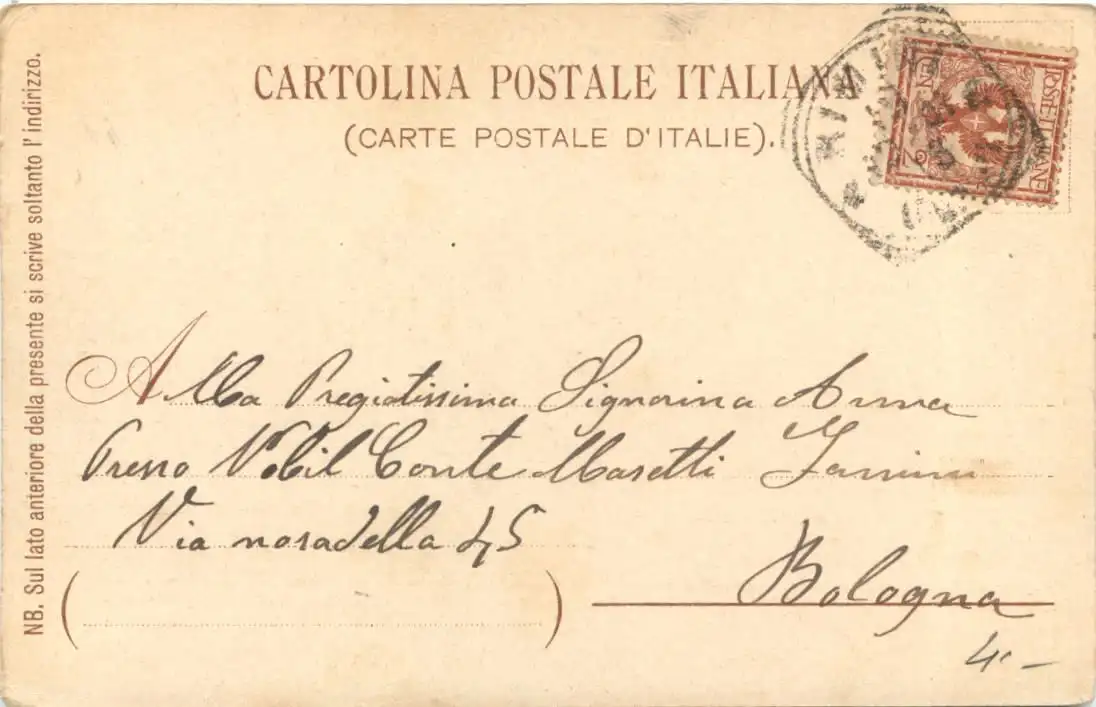 CARTOLINA POSTALE ITALIANA
(CARTE POSTALE D'ITALIE).
RIMINI
POSTE ITALIANE
CEN. 2
NB. Sul lato anteriore della presente si scrive soltanto l'indirizzo.
Alla Pregiatissima Signorina Anna
Presso Nobil Conte Masetti Zannini
Via nosadella 45
Bologna
4 -